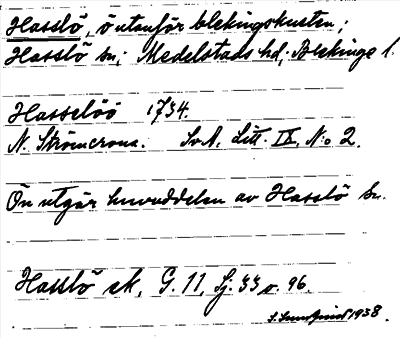 Hasslö, ö utanför blekingskusten;
Hasslö sn; Medelstads hd; Blekinge l.
Hasselöö 1734.
N. Strömcrona. SvA, Litt. IX, No 2.
Ön utgör huvuddelen av Hasslö sn.
Hasslö ek, G. 11, Sj. 33 s. 96.
1938.